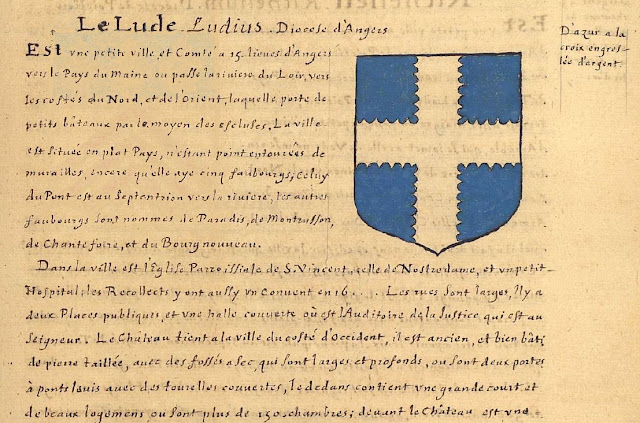 Le Lude. Ludius. Diocese d'Angers
Est vne petite ville, et Comté a 15. lieues d'Angers
vers le Pays du Maine ou passe la riviere du Loir, vers
les costés du Nord, et de l'Orient, laquelle porte de
petits bâteaux par le moyen des escluses. La ville
est située en plat Pays, n'estant point entourées de
murailles, encore qu'elle aye cinq fauxbourgs; Celuy
du Pont est au Septentrion vers la riviere, les autres
fauxbourgs sont nommés de Paradis, de Montrusson,
de Chantefoire, et du Bourg nouueau.
Dans la ville est l'Eglise Parroissiale de S. Vincent, celle de Nostredame, et vn petit
Hospital: les Recollects y ont aussy vn Conuent en 16 . . . . Les rues sont larges, Il y a
deux Places publiques, et vne halle couverte où est l'Auditoire de la Justice, qui est au
Seigneur. Le Château tient a la ville du costé d'Occident, il est ancien, et bien bâti
de pierre taillée, avec des fossés a sec, qui sont larges et profonds, ou sont deux portes
à ponts levis avec des tourelles couvertes, le dedans contient vne grande court, et
de beaux logemens ou sont plus de 150. chambres; deuant le Château est vne
D'azur a la
croix engres-
lée d'argent.